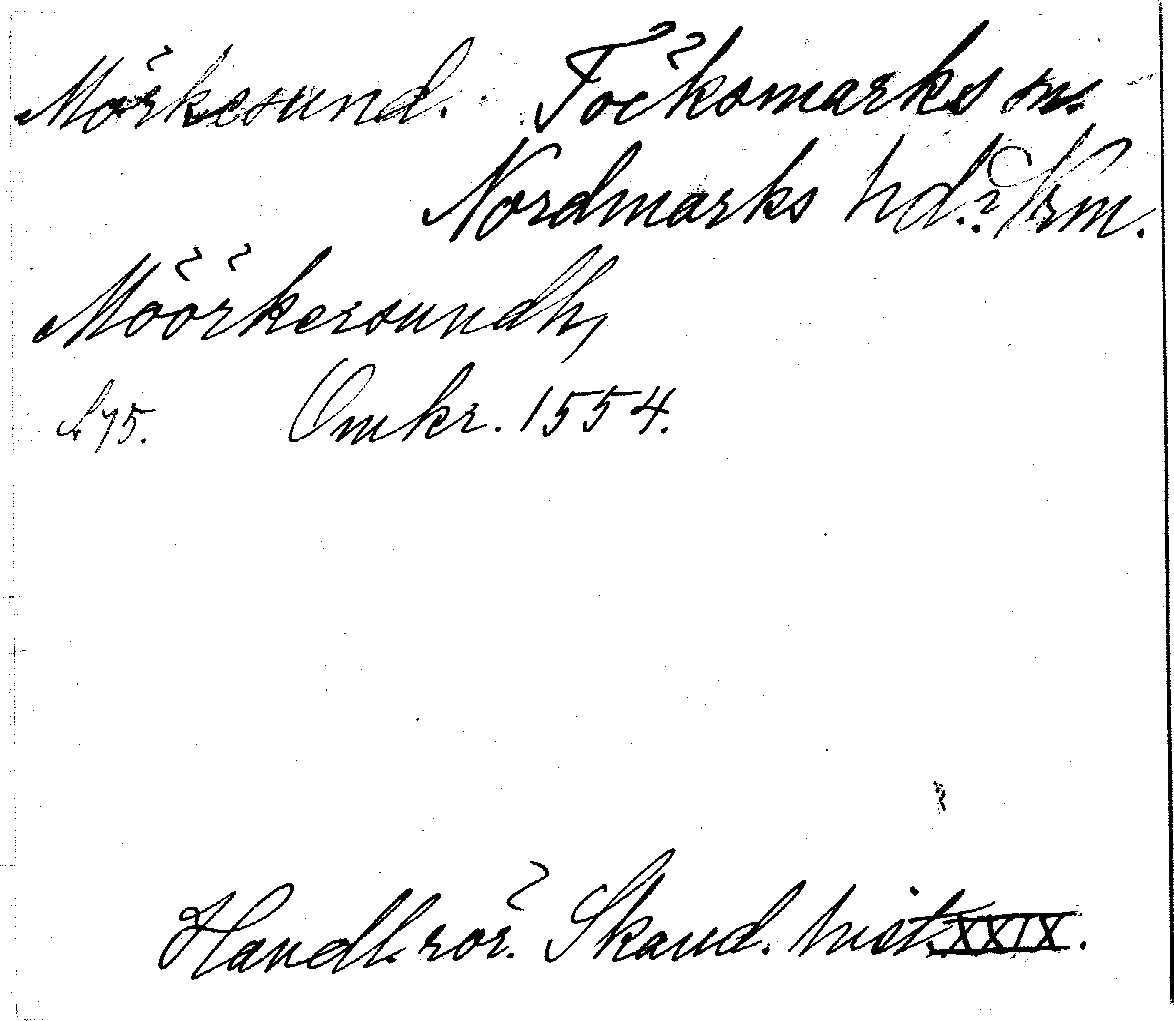 Mörkesund. Töcksmarks sn.
Nordmarks hd. Vrm.
Möörkersundh,
s. 75. Omkr. 1554.
Handl. rör. Skand. hist. XXIX.